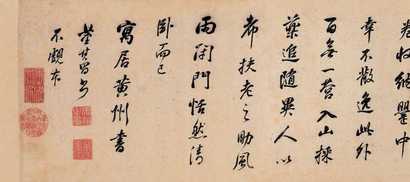 卷收中
幸不散逸此外
百無一營入山採
藥追隨異人以
希扶老之助風
雨閉門怡然清
卧而已
寓居黃州書
董其昌
不